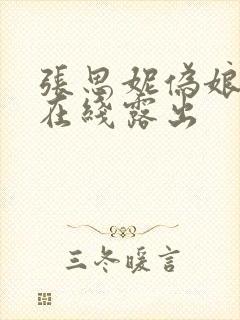 張思妮偽娘
在綫露出
三冬暖言